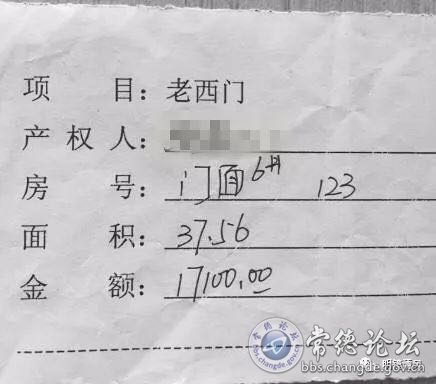 项 目：老西门
产 权 人：
房 号：门面6# 123
面 积：37.56
金 额：17100.00
常德论坛
bbs.changde.gov.cn